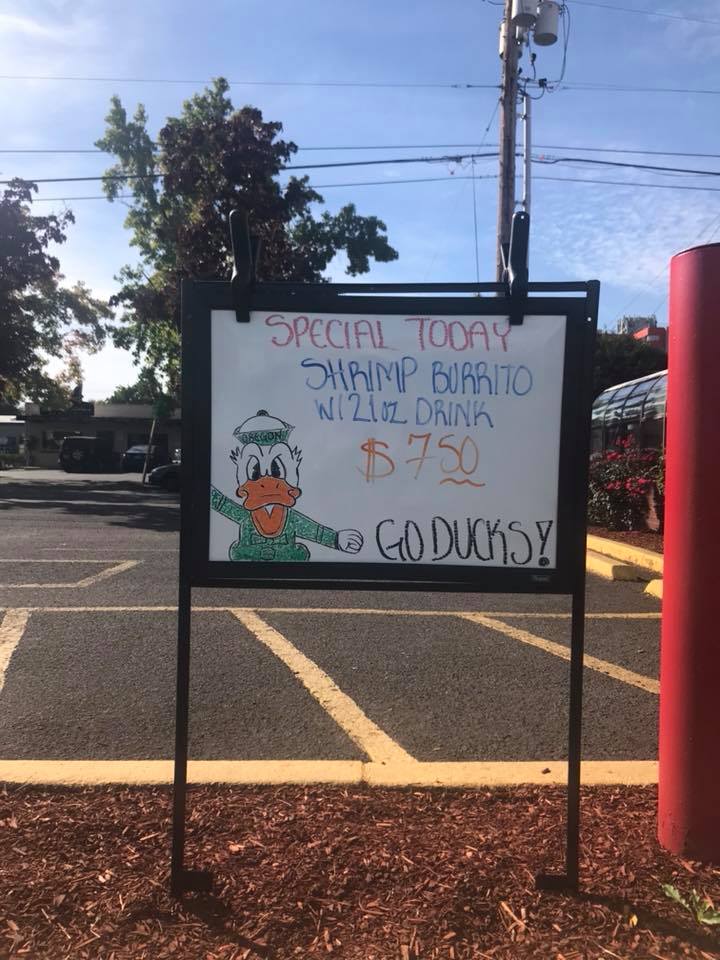 SPECIAL TODAY
SHRIMP BURRITO
W/ 21oz DRINK
$ 7 50
OREGON
GO DUCKS!